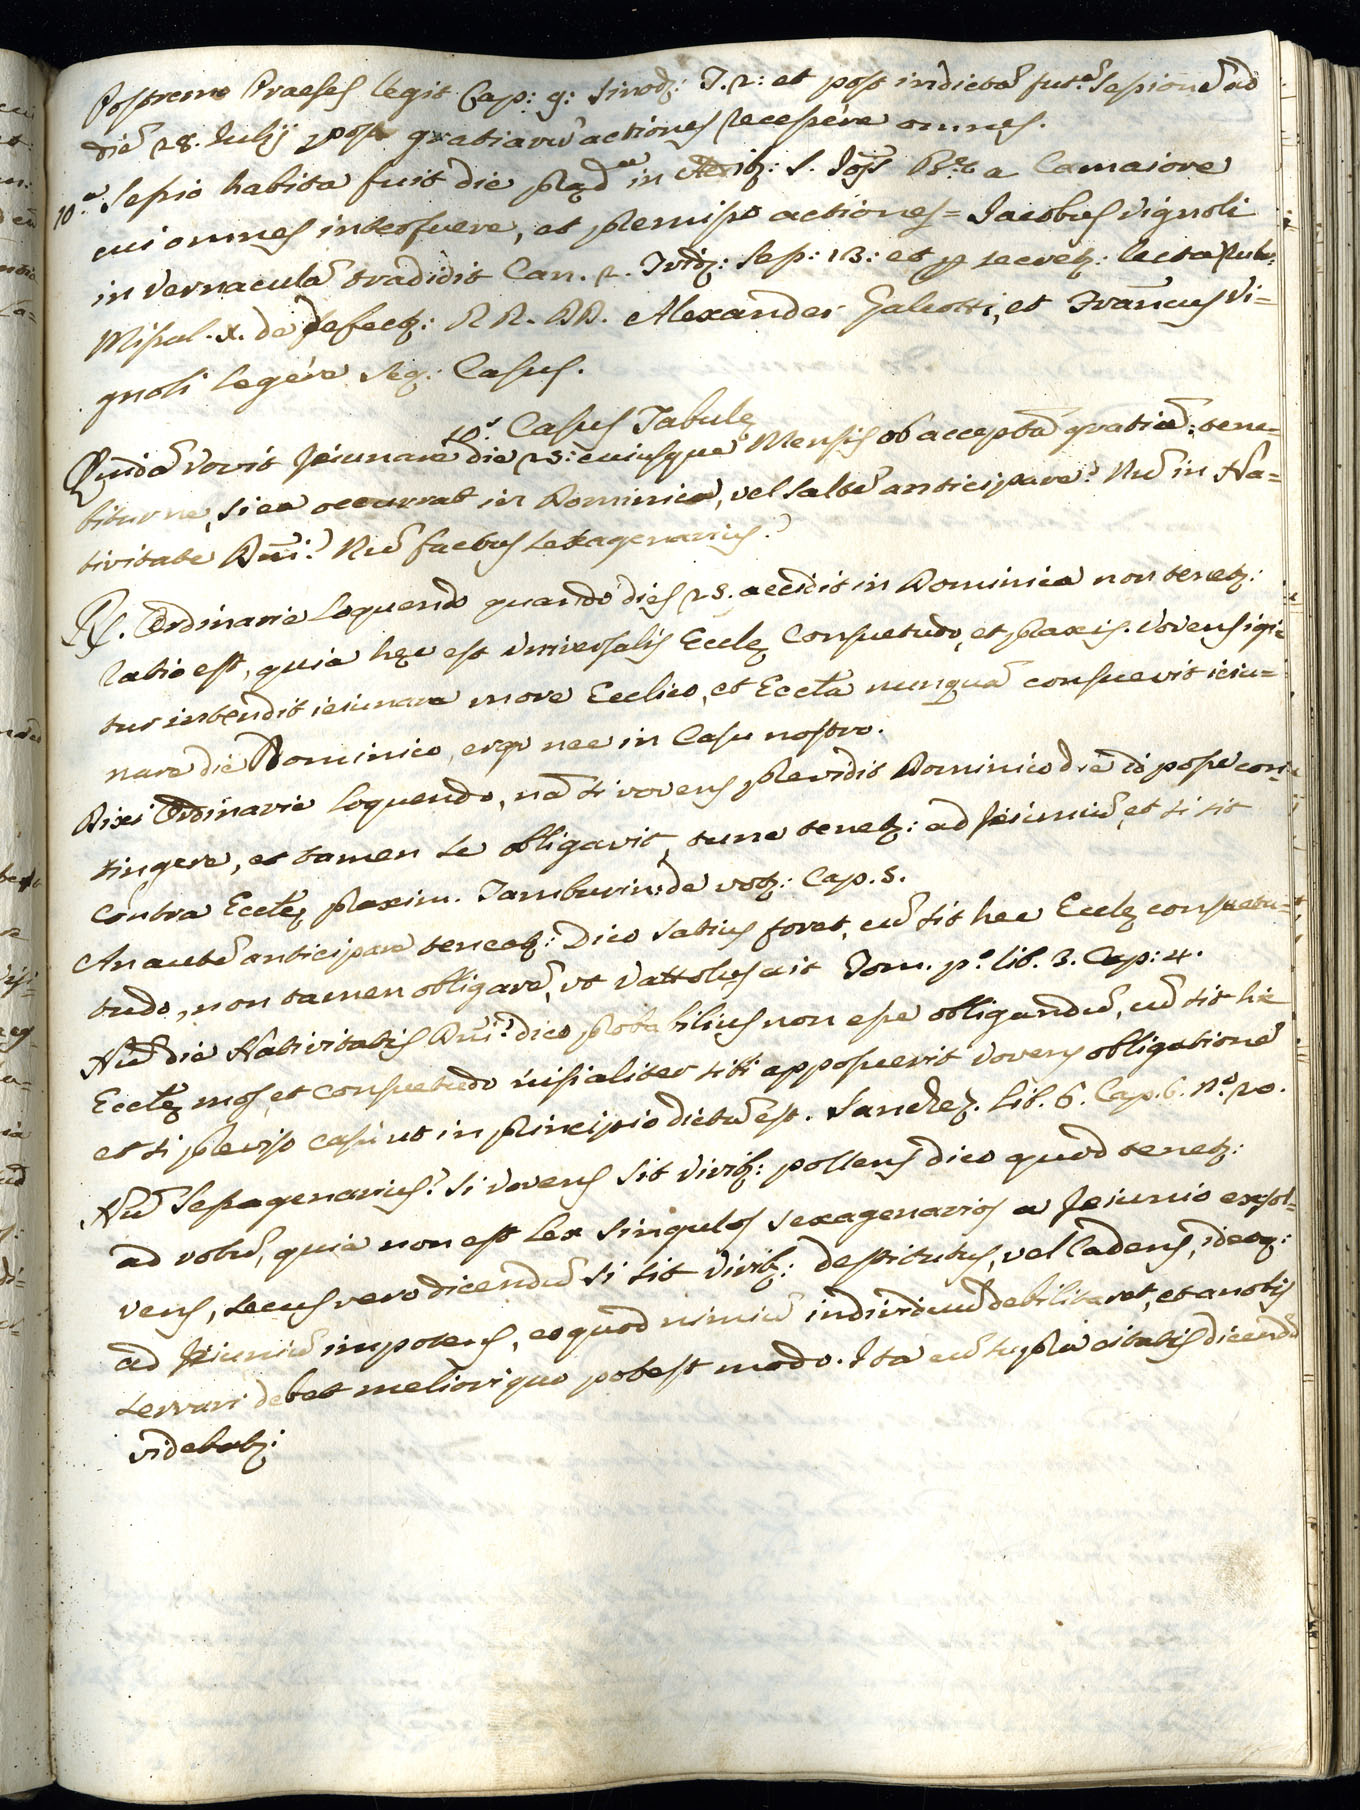 Postremo Praeses legit Cap: 9: Sinodz: T. 2: et post indictã fut.ã Sessionẽ ad
diẽ 28. Iulij post gratiarũ actiones recessere omnes.
10.a Sessio habita fuit die pręd.a in Aedibz: S. Joĩs B.ę a Camaiore
cui omnes interfuere, et premisso actiones = Iacobus Vignoli
in vernaculã tradidit Can. 2. Tridz: Sess: 13: et p secretz: lecta Rub:
Missal. X. de defectz: R R. D D. Alexander Galeotti, et Francus Vi=
gnoli legére seq: Casus.
10.s Casus Tabulę
Quidã vovit Jeiunare die 25: cuiusque Mensis ob acceptã gratiã; tene=
bitur ne, si ea occurrat in Dominica, vel saltẽ anticipare? Nũ in Na=
tivitate Dñi? Nũ factus sexagenarius?
R. Ordinarie loquendo quando dies 25. accidit in Dominica non tenetz:
Ratio est, quia hęc est Universalis Ecclę Consuetudo, et praxis. Vovens igi=
tur intendit ieiunare more Ecclico, et Eccła nunquã consuevit ieiu=
nare die Dominico, ergo nec in Casu nostro.
Dixi Ordinarie loquendo, nã si vovens previdit Dominico die id posse con=
tingere, et tamen se obligavit, tunc tenetz: ad Jeiuniũ, et si sit
contra Eccłę praxim. Tamburin: de votz: Cap. 5.
An autẽ anticipare teneatz: Dico satius foret, cũ sit hec Ecclę consuetu=
tudo, non tamen obligarẽ, ut Vattolus ait Tom. p.o lib. 3. Cap: 4.
Nũ die Nativitatis Dñi? dico probabilius non esse obligandũ, cũ sit hic
Eccłę mos, et consuetudo nisi aliter sibi apposuerit vovens obligationẽ
et si previso casu ut in principio dictũ est. Sanchez. Lib. 6. Cap. 6. N.o 20.
Nũ Sexagenarius? Si vovens sit viribz: pollens dico quod tenetz:
ad votũ, quia non est Lex singulos sexagenarios a Jeiunio exsol=
vens, secus vero dicendũ si sit viribz: destitutus, vel cadens, ideoq:
ad Jeiuniũ impotens, eo quod nimiũ individuũ debilitaret, et a nobis
servari debet meliori quo potest modo. Ita cũ supra citatis dicendũ
videbatz: